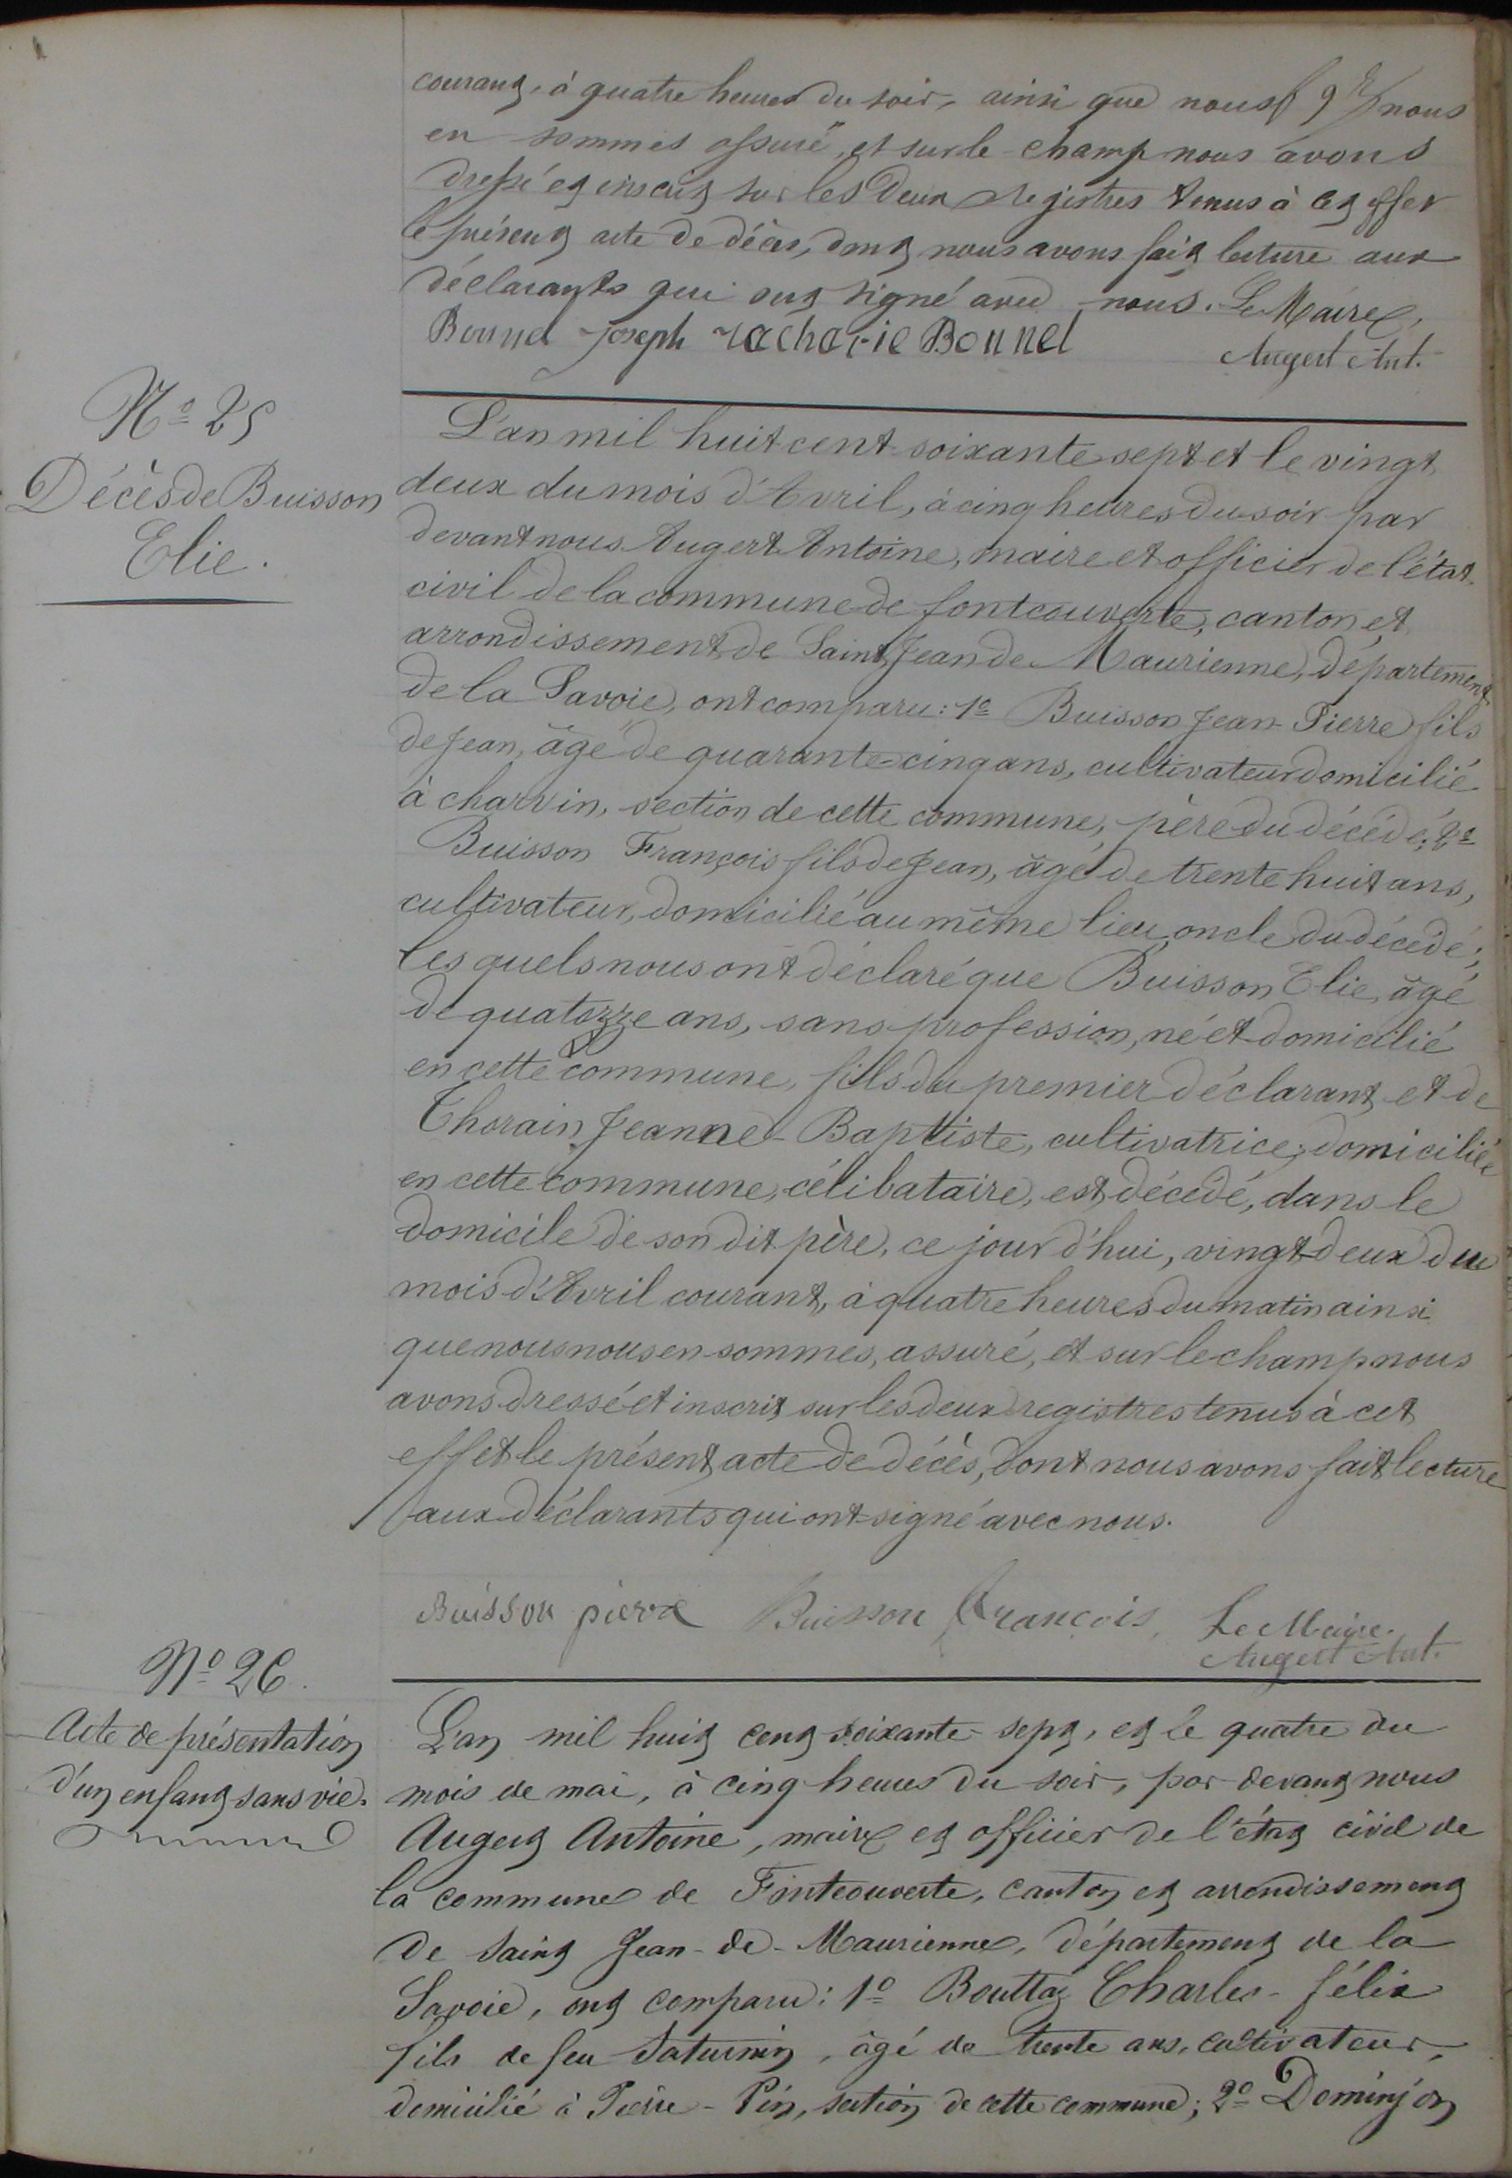 courant, à quatre heures du soir, ainsi que nous nous
en sommes assuré, et sur le champ nous avons
dressé et inscrit sur les deux registres tenus à cet effet
le présent acte de décès, dont nous avons fait lecture aux
déclarants qui ont signé avec nous. Le Maire,
Bonnel Joseph zacharie Bonnel
Augert Ant.
N° 25
Décès de Buisson
Elie.
L'an mil huit cent soixante sept et le vingt
deux du mois d'Avril, à cinq heures du soir par
devant nous Augert Antoine, maire et officier de l'état
civil de la commune de fontcouverte, canton et
arrondissement de Saint Jean de Maurienne, département
de la Savoie, ont comparu: 1° Buisson Jean-Pierre fils
de Jean, âgé de quarante-cinq ans, cultivateur domicilié
à charvin, section de cette commune, père du décédé; 2°
Buisson François fils de Jean, âgé de trente huit ans,
cultivateur, domicilié au même lieu, oncle du décédé;
les quels nous ont déclaré que Buisson Elie, âgé
de quatorze ans, sans profession, né et domicilié
en cette commune, fils du premier déclarant et de
Thorain Jeanne-Baptiste, cultivatrice, domiciliée
en cette commune, célibataire, est décédé, dans le
domicile de son dit père, ce jour d'hui, vingt-deux du
mois d'Avril courant, à quatre heures du matin ainsi
que nous nous en sommes, assuré, et sur le champ nous
avons dressé et inscrit sur les deux registres tenus à cet
effet le présent acte de décès, dont nous avons fait lecture
aux déclarants qui ont signé avec nous.
Buisson pierre Buisson François, Le Maire.
Augert Ant.
N° 26.
Acte de présentation
d'un enfant sans vie.
L'an mil huit cent soixante-sept, et le quatre du
mois de mai, à cinq heures du soir, par devant nous
Augert Antoine, maire et officier de l'état civil de
la commune de Fontcouverte, canton et arrondissement
de Saint Jean-de-Maurienne, département de la
Savoie, ont comparu: 1° Bouttaz Charles-félix
fils de feu Saturnin, âgé de trente ans, cultivateur,
domicilié à Pierre-Pin, section de cette commune; 2° Dominjon